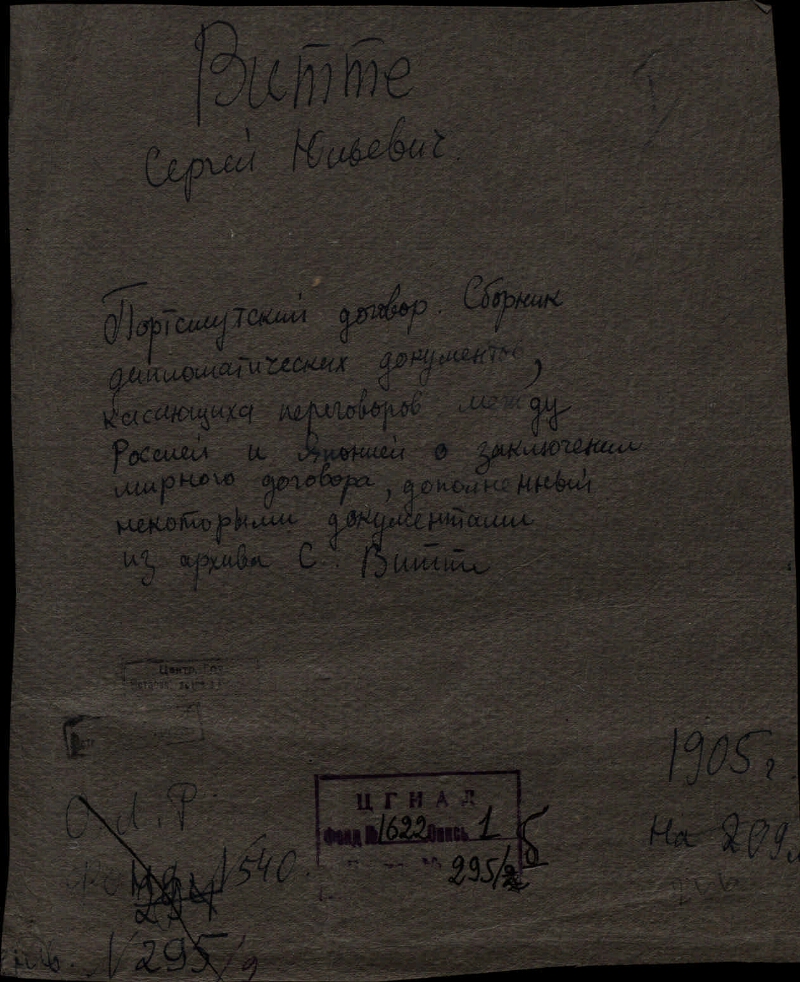 Витте
Сергей Юльевич.
Портсмутский договор. Сборник
дипломатических документов,
касающихся переговоров между
Россией и Японией о заключении
мирного договора, дополненный
некоторыми документами
из архива С. Витте
Центр. Гос
1905 г.
ЦГИАЛ
Фонд № 1622 Опись 1
295/
О.Л.Р.
На 209 л
№ 540.
294
№ 295/